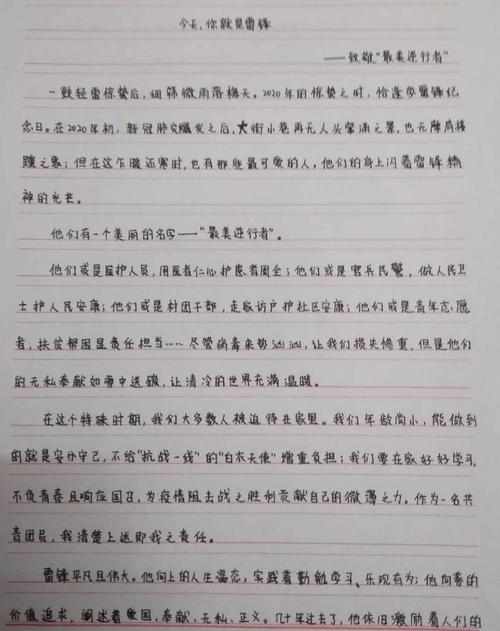 今天,你就是雷锋
——致敬“最美逆行者”
一鼓轻雷惊蛰后,细筛微雨落梅天。2020年的惊蛰之时,恰逢学雷锋纪
念日。在2020年初,新冠肺炎爆发之后,大街小巷再无人头攒涌之景,也无摩肩接
踵之象;但在这乍暖还寒时,也有那些最可爱的人,他们的身上闪着雷锋精
神的光芒。
他们有一个美丽的名字——“最美逆行者”。
他们或是医护人员,用医者仁心护患者周全;他们或是官兵民警,做人民卫
士护人民安康;他们或是村团干部,走家访户护社区安康;他们或是青年志愿
者,扶贫帮困显责任担当……尽管病毒来势汹汹,让我们损失惨重,但是他们
的无私奉献如雪中送碳,让清冷的世界充满温暖。
在这个特殊时期,我们大多数人被迫待在家里。我们年龄尚小,能做到
的就是安分守己,不给“抗战一线”的“白衣天使”增重负担;我们要在家好好学习,
不负青春且响应国召,为疫情阻击战之胜利贡献自己的微薄之力。作为一名共
青团员,我清楚上述即我之责任。
雷锋平凡且伟大。他向上的人生姿态,实践着勤勉学习、乐观有为;他向善的
价值追求,阐述着爱国、奉献、无私、正义。几十年过去了,他依旧激励着人们的